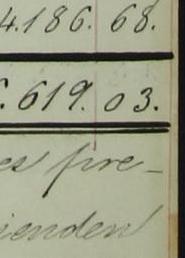 4.186. 68.
. 619. 03.
es pre-
ienden